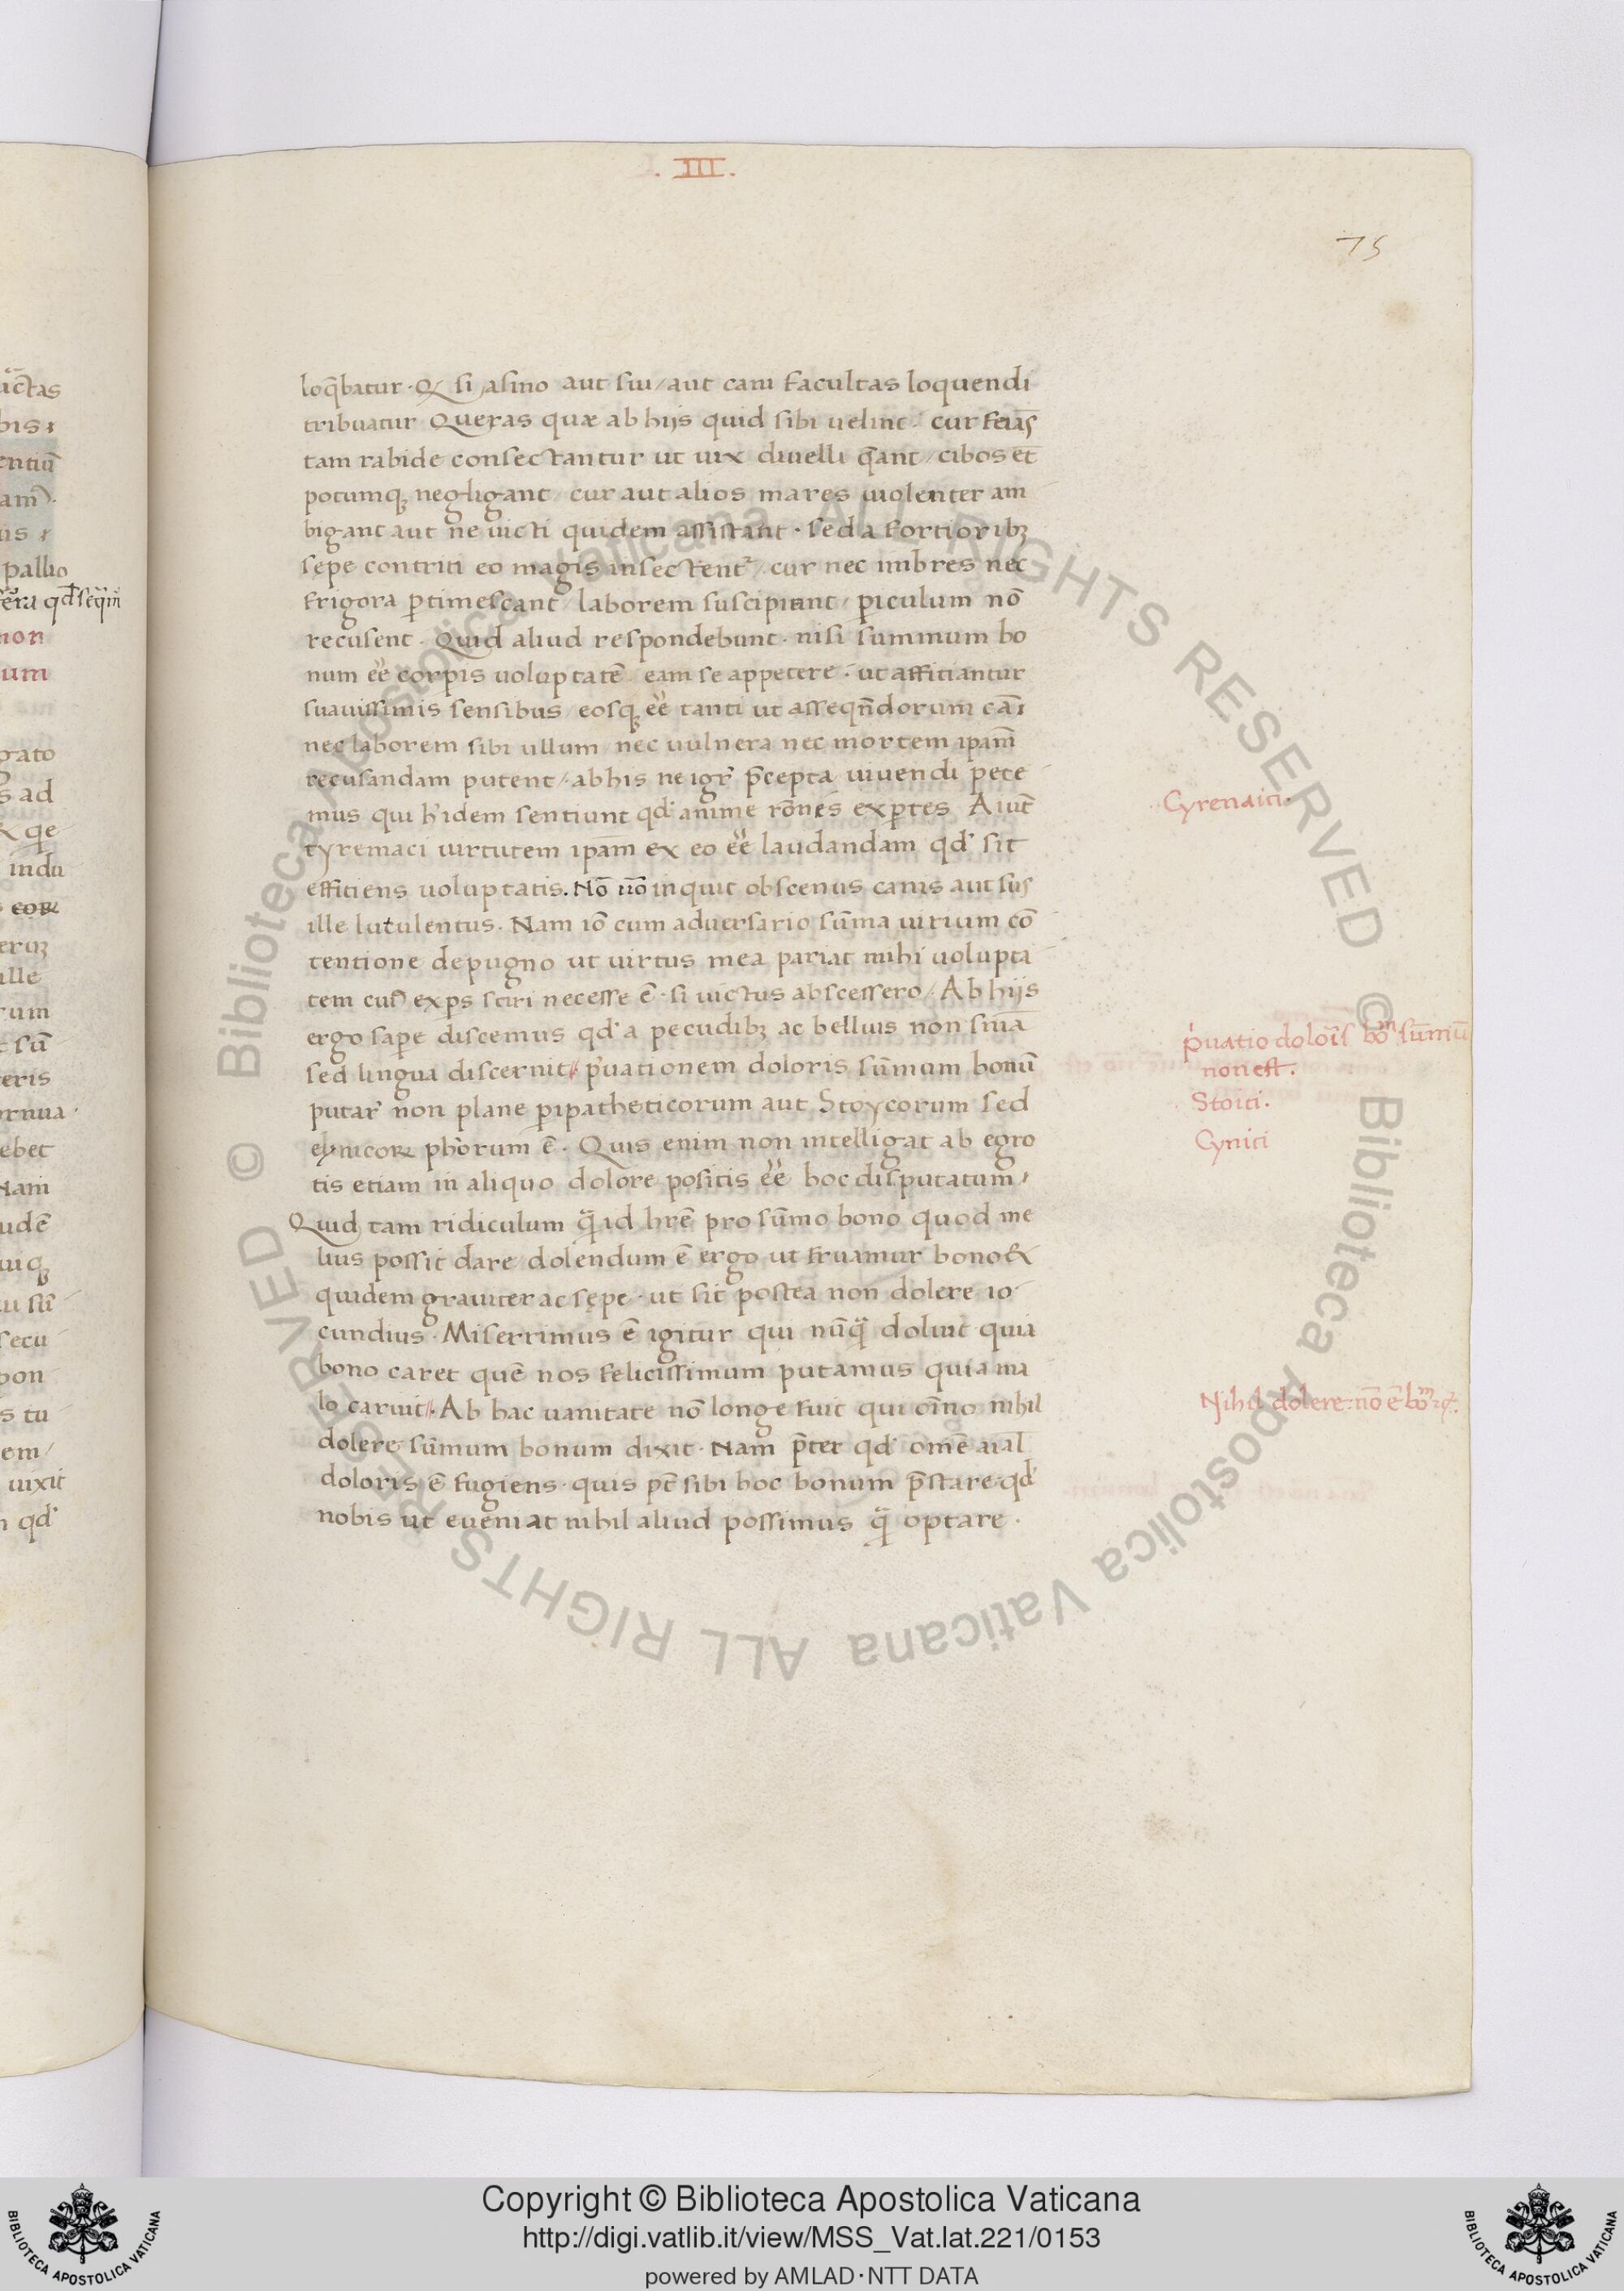 . III .
75
loq̄batur · Q si asino aut sui / aut cani facultas loquendi
tribuatur Queras quæ ab hijs quid sibi uelint · cur feīas
tam rabide consectantur ut uix diuelli q̄ant / cibos et
potumqꝫ negligant / cur aut alios mares uiolenter am
bigant aut ne uicti quidem assistant · sed a fortioribꝫ
sepe contriti eo magis insectent᷑ / cur nec imbres nec
frigora ꝑtimescant / laborem suscipiant / ꝑiculum nō
recusent · Quid aliud respondebunt · nisi summum bo
num eē corpis uoluptatē eam se appetere · ut afficiantur
suauissimis sensibus / eosqꝫ eē tanti ut asseqn̄dorum cāi
nec laborem sibi ullum nec uulnera nec mortem ipam̄
recusandam putent / ab his ne igr̄ p̄cepta uiuendi pete
mus qui h' idem sentiunt qd' anime rōnes exꝑtes Aiūt
cyrenaici uirtutem ipam̄ ex eo eē laudandam qd' sit
efficiens uoluptatis. Nō uō inquit obscenus canis aut sus
ille lutulentus. Nam iō cum aduersario sūma uirium cō
tentione depugno ut uirtus mea pariat mihi uolupta
tem cuiꝰ exps sciri necesse ē · si uictus abscessero / Ab hijs
ergo sape discemus qd' a pecudibꝫ ac belluis non sn̄ia
sed lingua discernit // p'uationem doloris sūmum bonū
putar̄ non plane ꝑipatheticorum aut Stoycorum sed
clynicoꝝ ph'orum ē · Quis enim non intelligat ab egro
tis etiam in aliquo dolore positis eē hoc disputatum /
Quid tam ridiculum q̄ id hr̄e pro sūmo bono quod me
lius possit dare dolendum ē ergo ut fruamur bono &
quidem grauiter ac sępe · ut sit postea non dolere io
cundius · Miserrimus ē igitur qui nūq̄ doluit quia
bono caret quē nos felicissimum putamus quia ma
lo caruit // · Ab hac uanitate nō longe fuit qui oīno nihil
dolere sūmum bonum dixit · Nam p̄ter qd' omē aial
doloris ē fugiens · quis pt̄ sibi hoc bonum p̄stare qd'
nobis ut eueniat nihil aliud possimus q̄ optare ·
Cyrenaici.
p'uatio doloīs bom̄ sūmū
non est.
Stoici.
Cynici
Nihil dolere nō ē bom̄
uctas
bis
entiū
am
pallio
non
um
gato
s ad
indu
ille
rum
sū
eris
rnua ·
ebet
Nam
udē
secu
pon
s tu
em /
uixit
qd'
© Biblioteca Apostolica Vaticana ALL RIGHTS RESERVED © Biblioteca Apostolica Vaticana ALL RIGHTS RESERVED
Copyright © Biblioteca Apostolica Vaticana
http://digi.vatlib.it/view/MSS_Vat.lat.221/0153
powered by AMLAD · NTT DATA
BIBLIOTECA APOSTOLICA VATICANA
BIBLIOTECA APOSTOLICA VATICANA